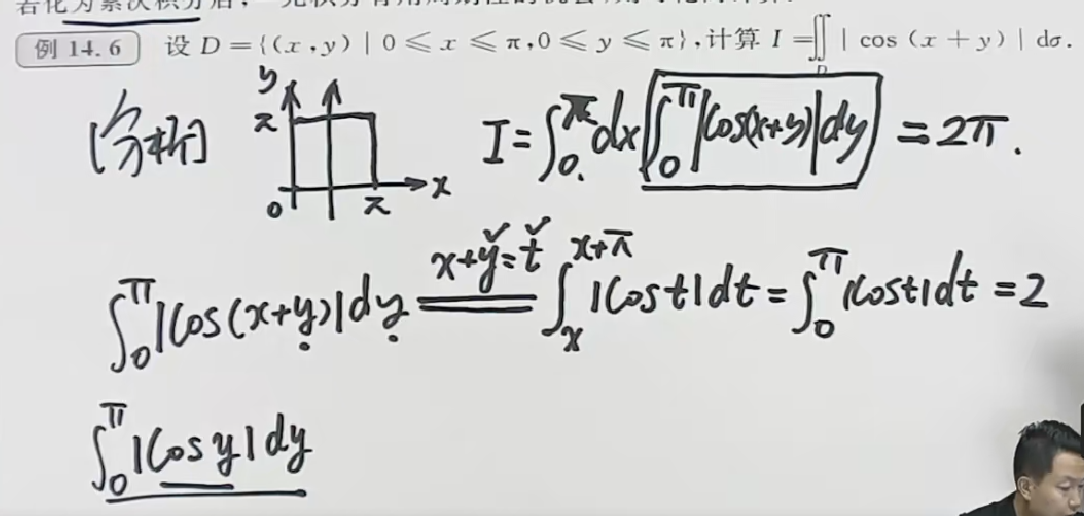 若化为累次积分后,
例 14.6 设 D={(x,y)|0≤x≤π,0≤y≤π},计算 I=∬_D |cos(x+y)|dσ.
[分析] y π 0 π x I=∫_0^π dx ∫_0^π |cos(x+y)|dy = 2π.
∫_0^π |cos(x+y)|dy x+y=t ∫_x^{x+π} |cost|dt = ∫_0^π |cost|dt = 2
∫_0^π |cos y|dy